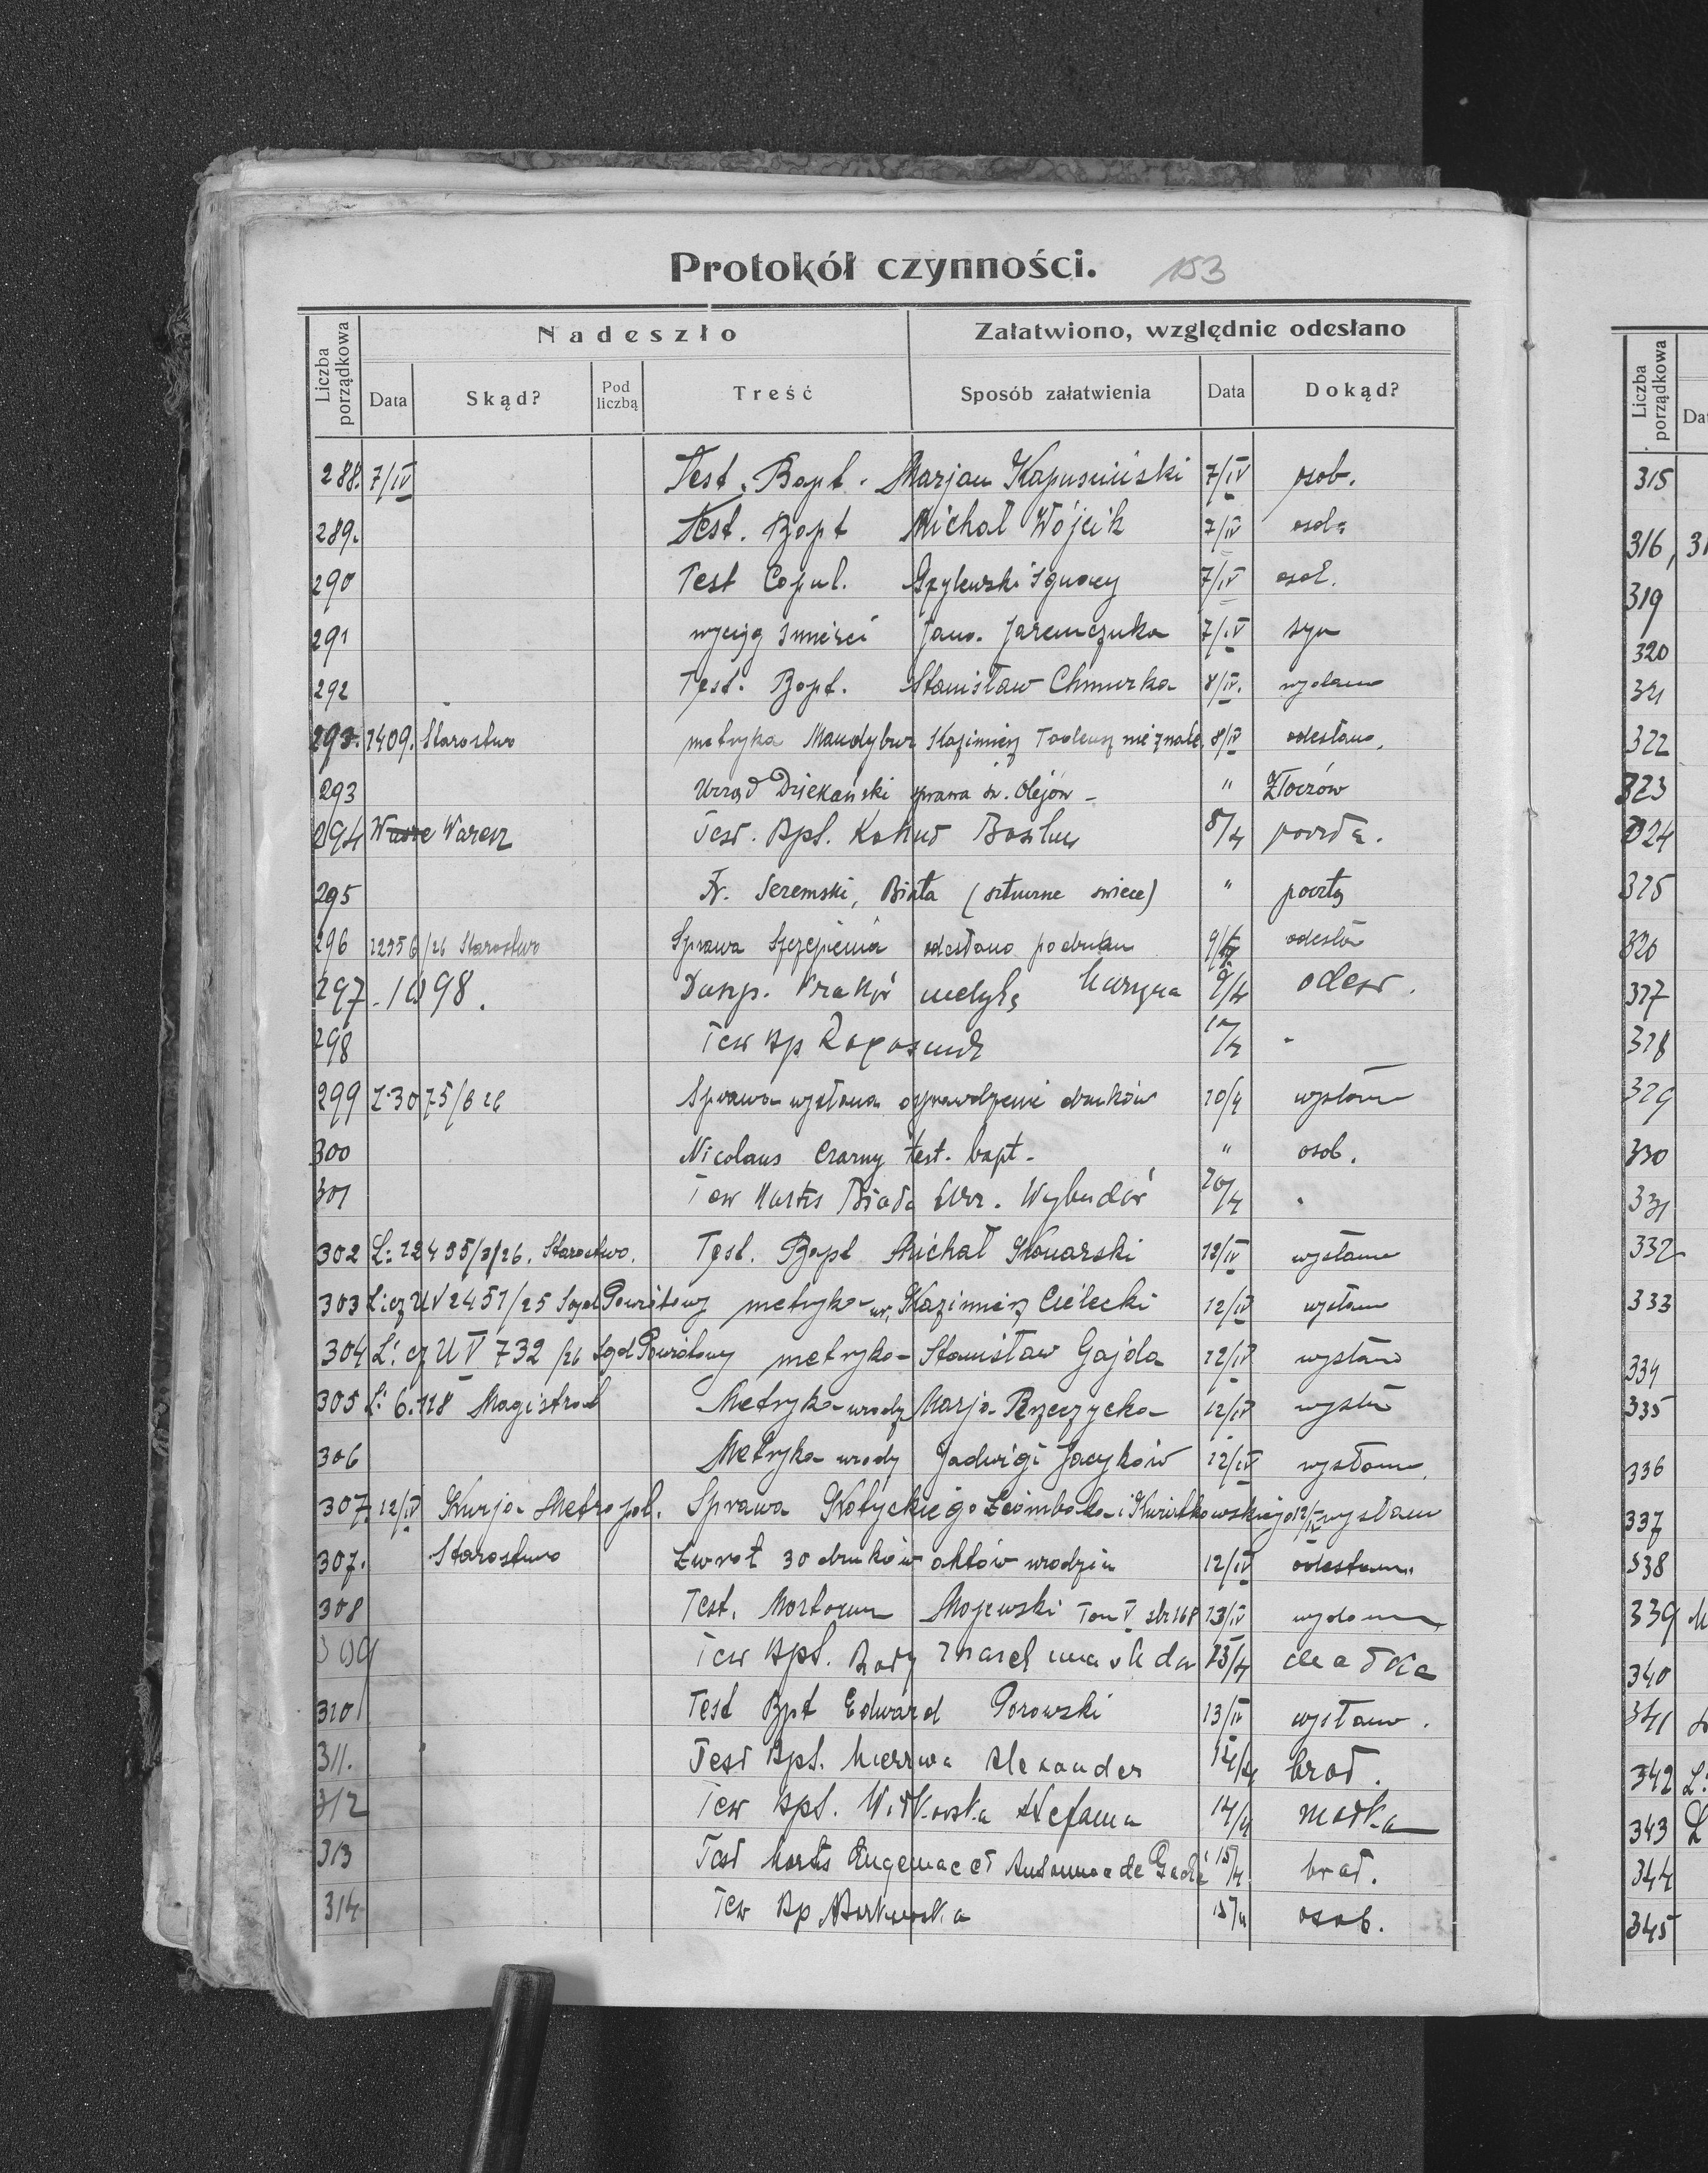 Protokół czynności. 153
Liczba porządkowa Nadeszło Załatwiono, względnie odesłano
Data Skąd? Pod liczbą Treść Sposób załatwienia Data Dokąd?
288. 7/IV Test. Bapt. Marjan Kapuściński 7/IV osob.
289. Test. Bapt Michał Wójcik 7/IV osob.
290 Test Copul. Ignacy 7/IV osob.
291 wyciąg śmierci Jana. Jaremczuka 7/IV syn
292 Test. Bapt. Stanisław Chmurka 8/IV. wydano
293. 1409. Starostwo metryka Mandybur Kazimierz Tadeusz nie znale. 8/IV odesłano.
293 Urząd Dziekański sprawa św. Olejów - " Złoczów
294 Warez Test. Bpt. Kohut 8/4 pocztą.
295 Fr. Seremski, Biała (sztuczne świece) " pocztą
296 /26 Starostwo Sprawa Szczepienia odesłano po druku odesła
297. 1098. Duszp. Kraków metrykę 9/4 odesł.
298 Test Bp
299 L. 3075/6 26 Sprawa wysłana druków 10/4 wysłano
300 Nicolaus Czarny test. bapt. - " osob.
301 Test Mortis
302 L: 12495/3/26. Starostwo. Test. Bapt Michał 12/IV wysłano
303 L: cz U V 2451/25 Sąd Powiatowy metryka ur. Kazimierz Cielecki 12/IV wysłano
304 L: cz U V 732 /26 Sąd Powiatowy metryka - Stanisław Gajda 12/IV wysłano
305 L: 6.118 Magistrat Metryka urodz Marja Rzeczycka 12/IV wysła
306 Metryka urodz Jadwigi Jacyków 12/IV wysłano
307. 12/IV Kurja Metropol. Sprawa i Kwiatkowskiego 12/IV wysłano
307. Starostwo Zwrot 30 druków aktów urodzin 12/IV odesłano.
308 Test. Mortuum Majewski Tom V str 168 13/IV wydano
309 Test Bpt. 13/4 matka
310 Test Bpt Edward Porowski 13/IV wysłano.
311. Test Bpt. Mierzwa Alexander 14/4 brat.
312 Test Bpt. Witkowska Stefania 14/4 matka
313 Test Mortis Eugeniae et Antoninae de 15/4 brat.
314 Test Bp 15/4 osob.
Liczba porządkowa
315
316, 31
319
320
321
322
323
324
325
326
327
328
329
330
331
332
333
334
335
336
337
338
339 M
340
341
342 L:
343 L
344
345